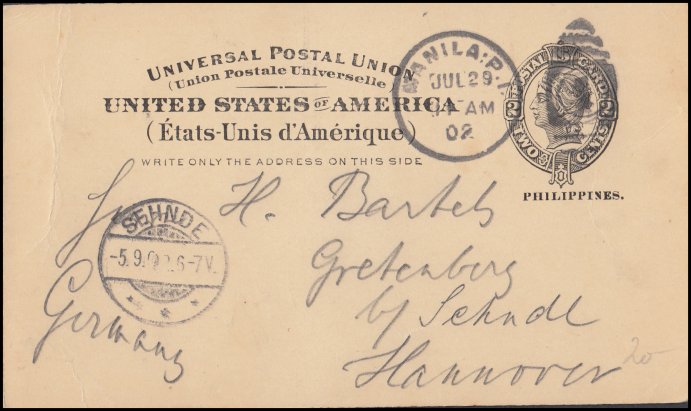 UNIVERSAL POSTAL UNION
(Union Postale Universelle)
UNITED STATES OF AMERICA
(États-Unis d'Amérique)
WRITE ONLY THE ADDRESS ON THIS SIDE
MANILA. P.I.
JUL 29
AM
02
POSTAL CARD
2 2
TWO CENTS
PHILIPPINES.
H. Bartels
Gretenberg
by Sehnde
Hannover
Germany
SEHNDE
-5.9.02.6-7V.
20